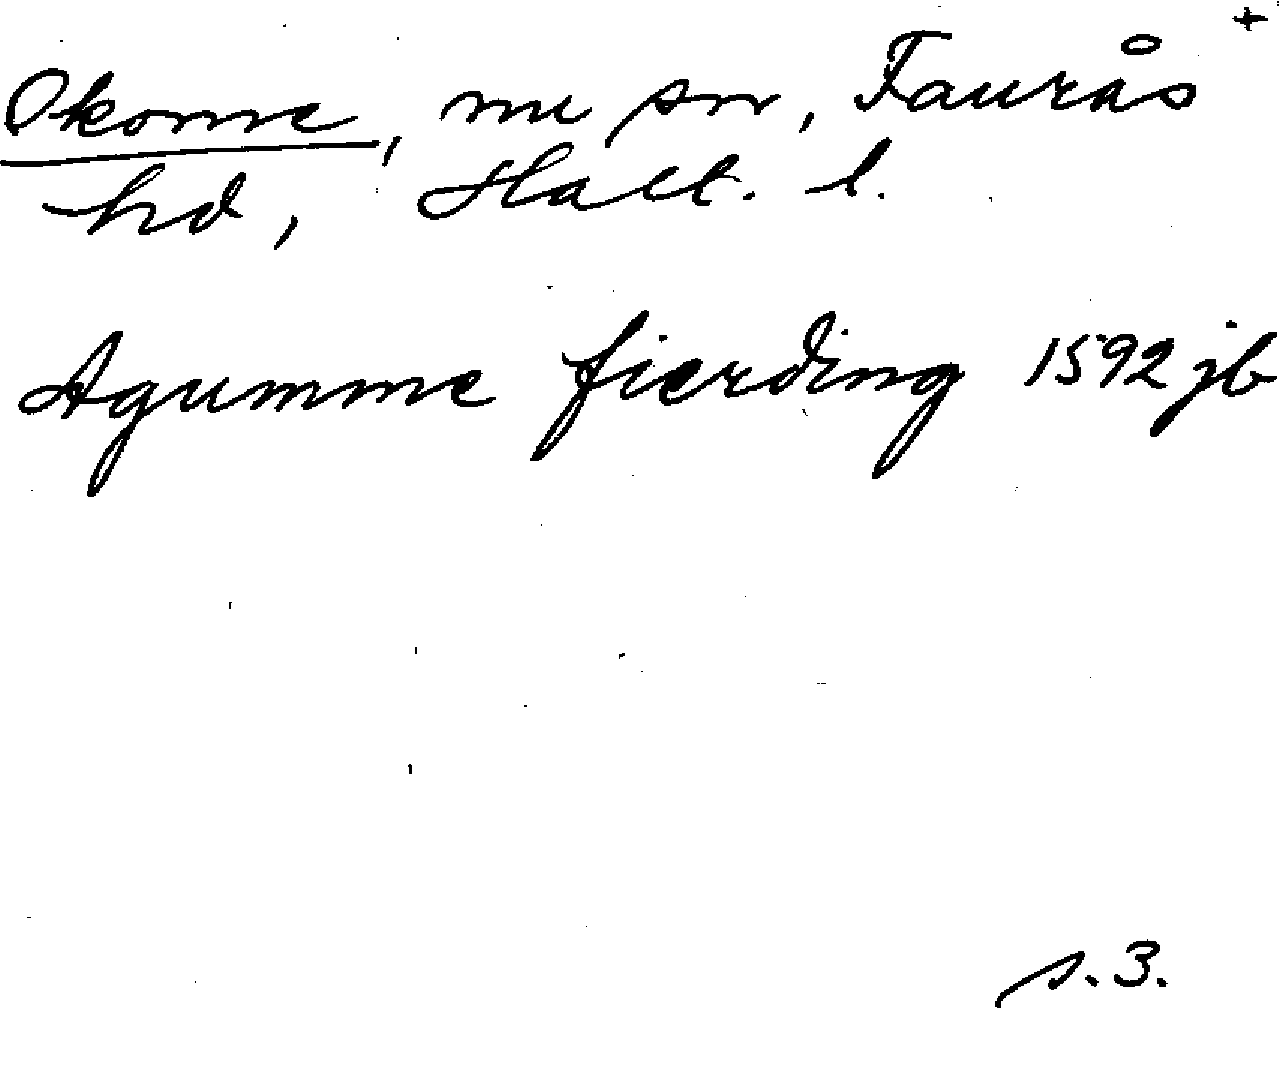 +
Okome, nu sn, Faurås
hd, Hall. l.
Agumme fierding 1592 jb
s. 3.